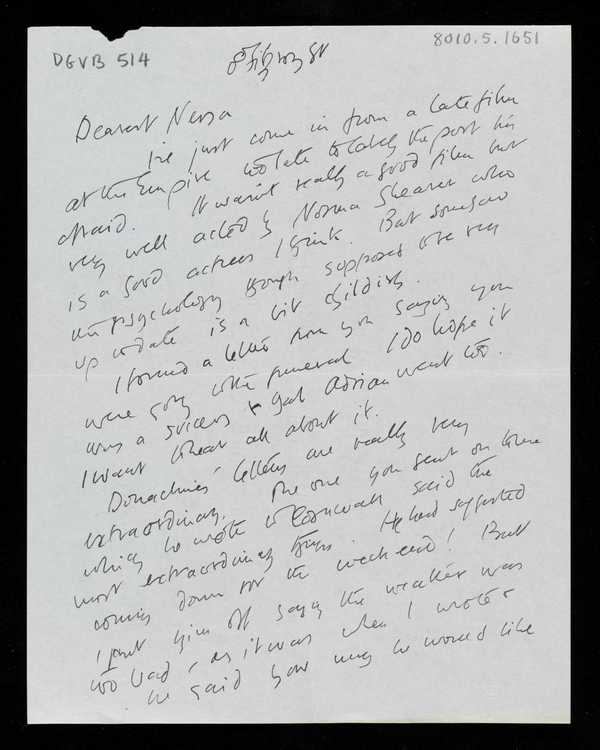 DGVB 514
8010.5.1651
8 Fitzroy St
Dearest Nessa
I've just come in from a late film
at the Empire too late to catch the post I'm
afraid. It wasn't really a good film but
very well acted by Norma Shearer who
is a good actress I think. But somehow
the psychology though supposed to be very
up to date is a bit childish.
I found a letter from you saying you
were going to the funeral I do hope it
was a success & that Adrian went too.
I want to hear all about it.
Donachies' letters are really very
extraordinary. The one you sent on to me
which he wrote to Cornwall said the
most extraordinary things. He had suggested
coming down for the weekend! But
I put him off saying the weather was
too bad, as it was when I wrote &
he said how much he would like